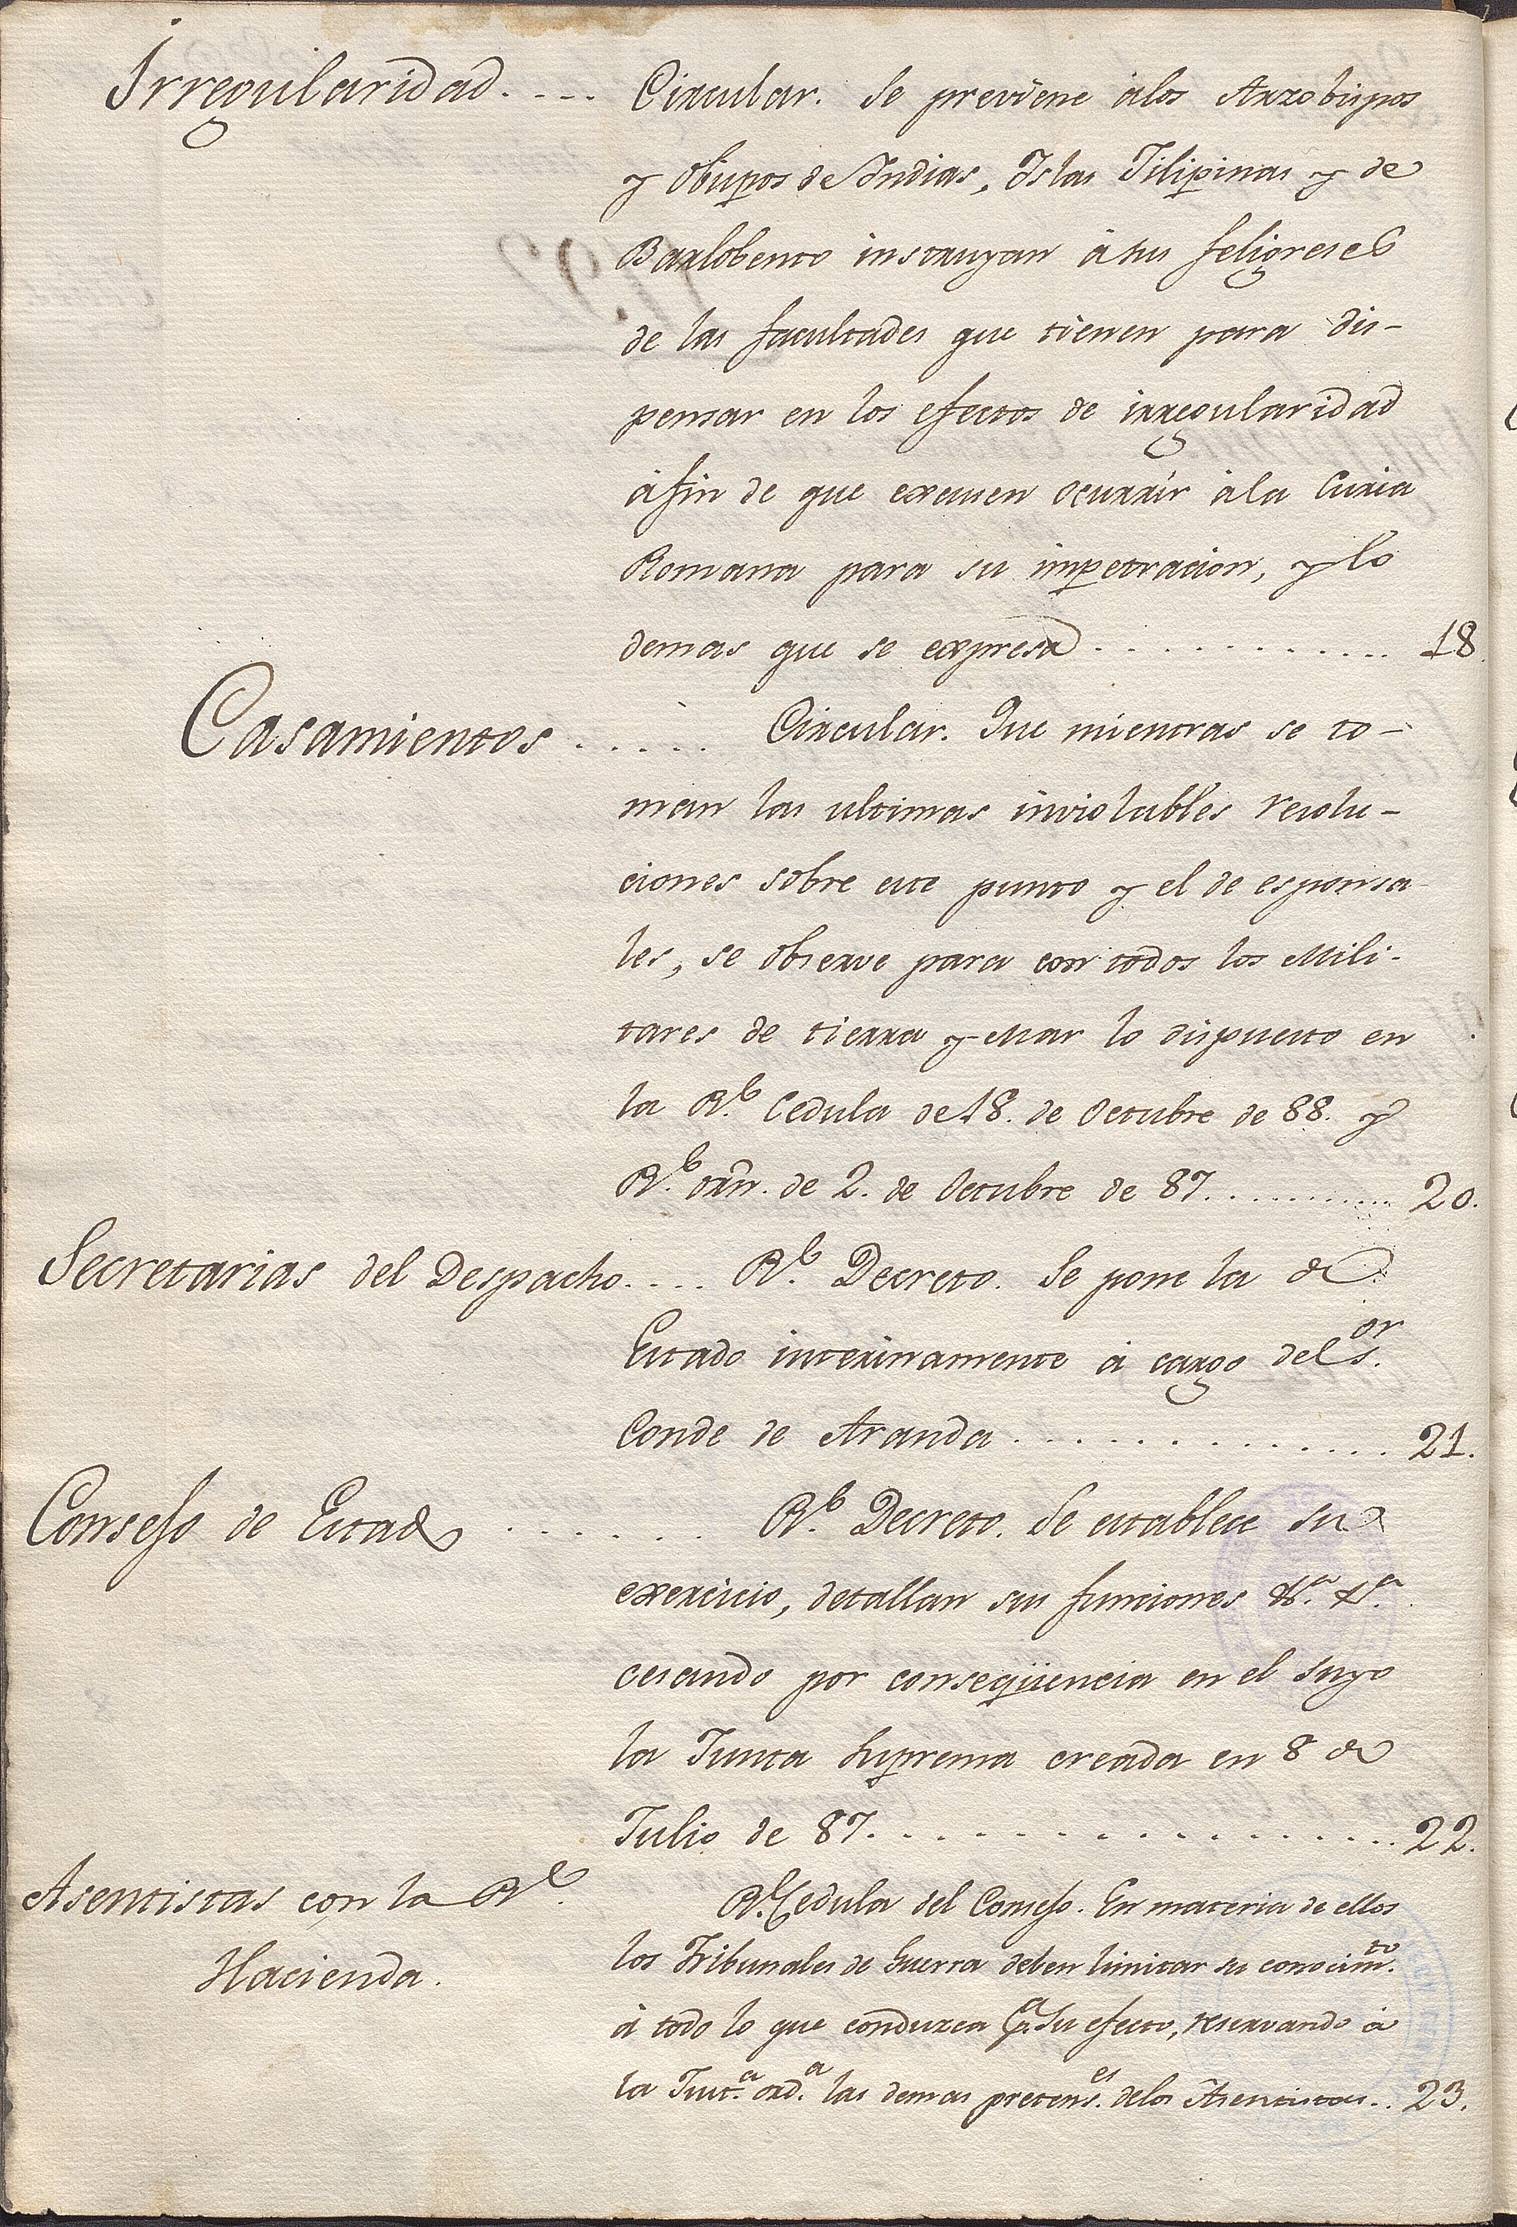 Irregularidad. . . . Circular. Se previene à los Arzobispos
y Obispos de Indias, Islas Filipinas y de
Barlobento instruyan à sus feligreses
de las facultades que tienen para dis-
pensar en los efectos de irregularidad
à fin de que excusen ocurrir à la Curia
Romana para su impetracion, y lo
demas que se expresa . . . . . . . . . . . . 18
Casamientos . . . . . Circular. Que mientras se to-
man las ultimas inviolables resolu-
ciones sobre este punto y el de esponsa-
les, se observe para con todos los Mili-
tares de tierra y Mar lo dispuesto en
la Rl. Cedula de 18. de Octubre de 88. y
Rl. orn. de 2. de Octubre de 87. . . . . . . . . . 20.
Secretarias del Despacho. . . . Rl. Decreto. Se pone la de
Estado interinamente à cargo del Sor.
Conde de Aranda . . . . . . . . . . . . . . 21.
Consejo de Estado . . . . . . Rl. Decreto. Se establece su
exercicio, detallan sus funciones &a. &a.
cesando por conseqüencia en el suyo
la Junta Suprema creada en 8 de
Julio de 87. . . . . . . . . . . . . . . . 22.
Asentistas con la Rl. Rl. Cedula del Consejo. En materia de ellos
Hacienda. los Tribunales de Guerra deben limitar su conocimto.
à todo lo que conduzca pa. su efecto, reservando à
la Justa. orda. las demas pretenses. de los Asentistas. . 23.